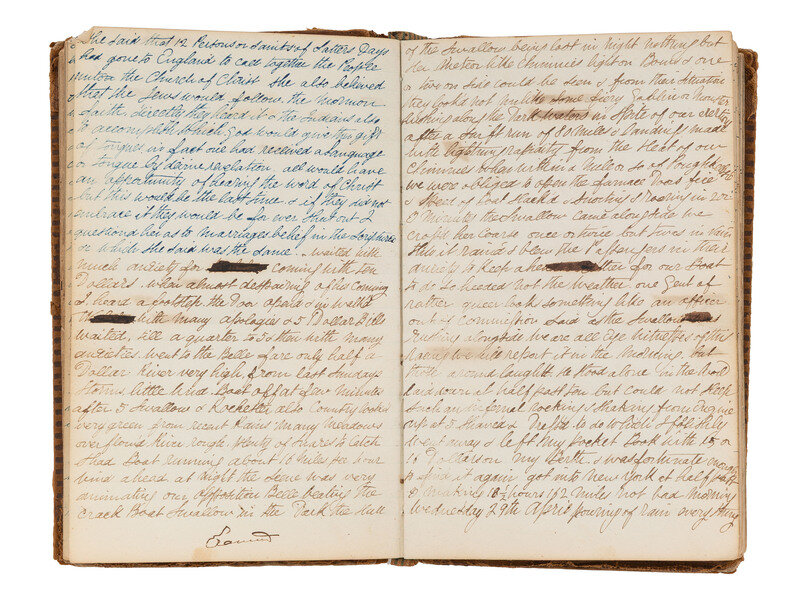 She said that 12 Persons or Saints of Latters Days
had gone to England to call together the People
unto the Church of Christ She also believed
that the Jews would follow the Mormon
faith directly they heard it & the Indians also
to accomplish which God would give them gift
of tongues in fact one had received a Language
or tongue by divine revelation all would have
an opportunity of hearing the word of Christ
but this would be the last time & if they did not
embrace it they would be for ever Shut out I
questioned her as to Marriages belief in the Scriptures
in which she said was the same waited with
much anxiety for coming with ten
Dollars when almost despairing of his coming
I heard a footstep the Door opened in walks
with many apologies & 5 Dollar Bills
waited till a quarter to 5 & then with many
anxieties went to the Belle fare only half a
Dollar River very high from last Sundays
Storms little wind Boat off at few Minutes
after 5 Swallow & Rochester also Country looks
very green from recent Rains many Meadows
overflowed River rough plenty of to catch
Shad Boat running about 16 Miles per hour
wind ahead at night the Scene was very
animating our opposition Belle beating the
crack Boat Swallow in the Dark the Hull
Examined
of the Swallow being lost in Night nothing but
Her Meteor like Chimnies light on Bows & one
or two on Side could be seen & from their Situation
they looked not unlike Some fiery Goblin or Monster
along the Dark waters in Spite of our exertions
after a Swift run of 80 Miles & landings made
with lightning rapidity from the Heat of our
Chimnies when within a Mile or so of
we were obliged to open the furnace Doors fire
& Steed of Boat Slackd & Snorting & roaring in 2 or
3 Minutes the Swallow came alongside we
crossd her Course once or twice but twas in vain
this it raind & blew the Passengers in their
anxiety to keep a for our Boat
to do so heeded not the Weather one Gent of
rather queer look something like an officer
out of Commission Said as the Swallow was
rushing alongside we are all Eye Witnesses of this
we will report it in the Morning but
those around laughed he stood alone in the
laid down at half past ten but could not Sleep
such an infernal Rocking & Shaking from Engine
up at 5 Shaved & Dressd to do which I foolishly
went away & left my Pocket Book with 15 or
16 Dollars on my Berth & was fortunate enough
to find it again got into New York at half past
3 Making hours 162 Miles not bad Morning
Wednesday 29th April pouring of rain every thing